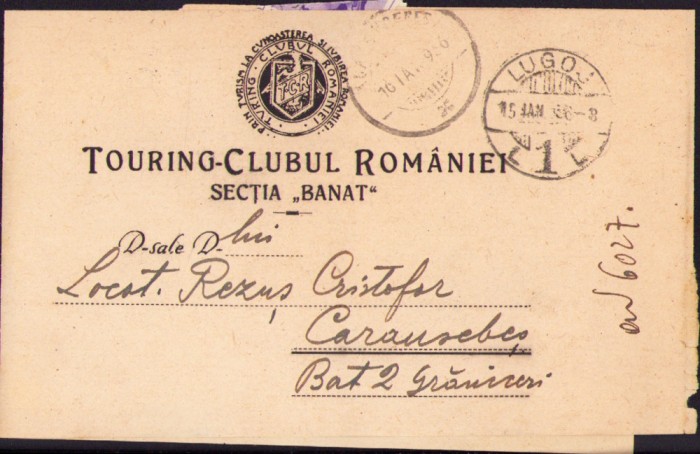 PRIN TURISM LA CUNOASTEREA SI IUBIREA ROMANIEI
TURING-CLUBUL ROMANIEI
TCR
16 IAN. 936
LUGOJ
15 IAN. 936-8
1
TOURING-CLUBUL ROMÂNIEI
SECȚIA „BANAT“
D-sale D-lui
Locot. Rezuș Cristofor
Caransebeș
Bat 2 Grăniceri
6027.